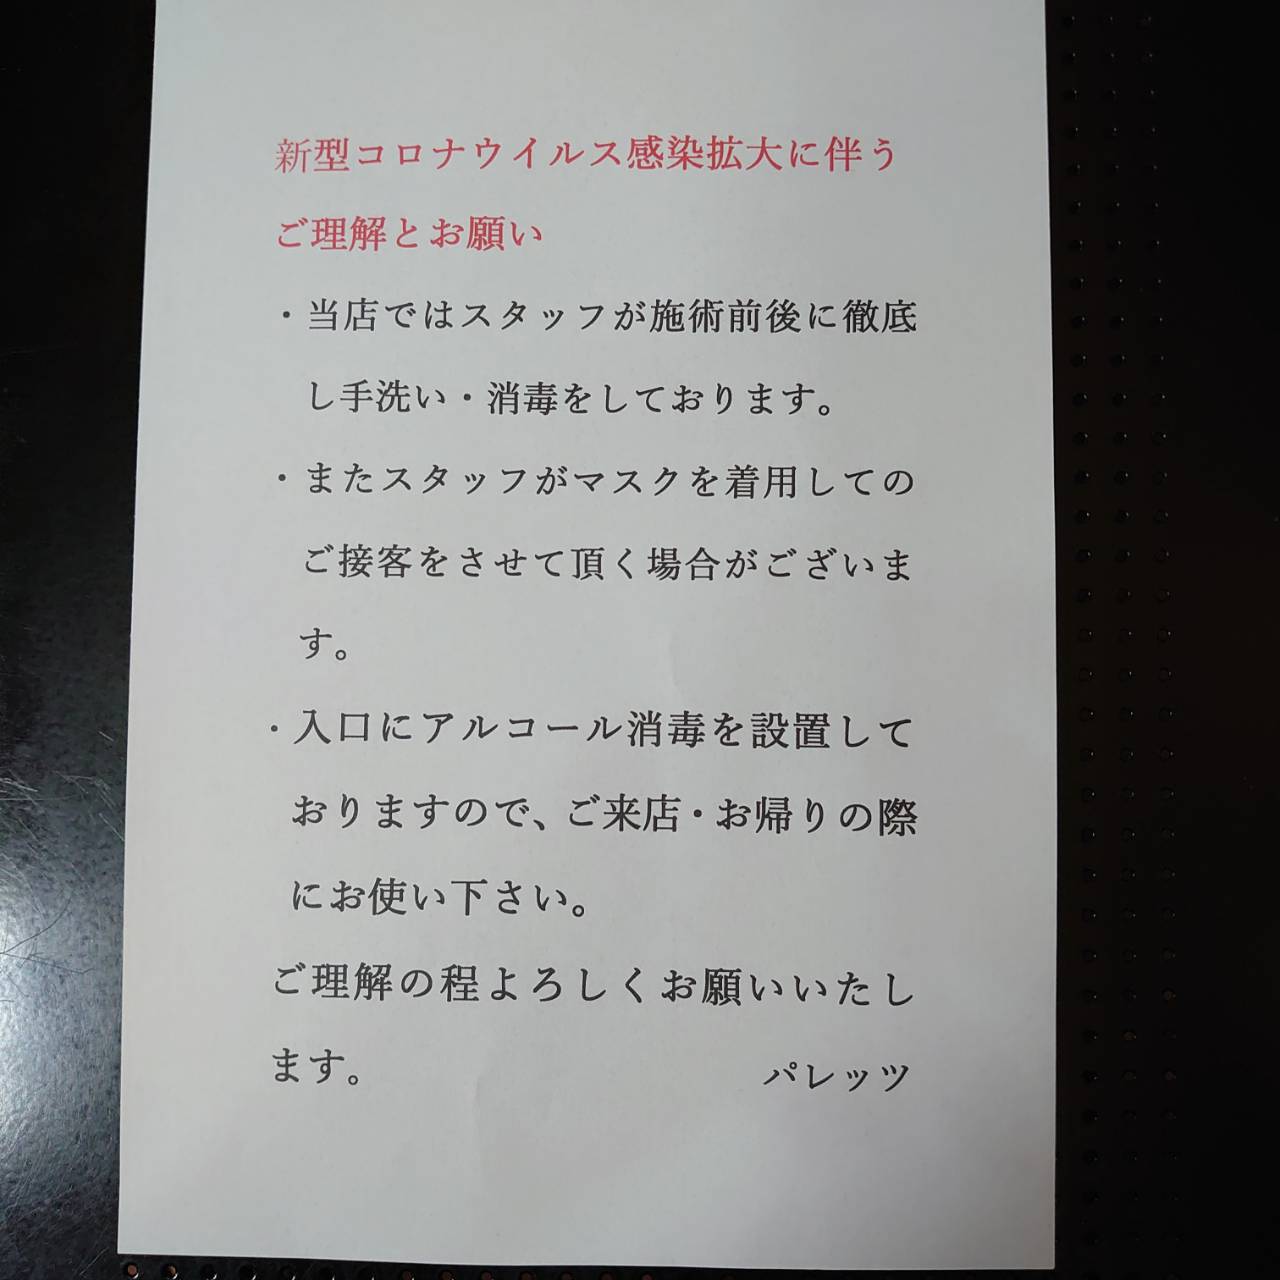 新型コロナウイルス感染拡大に伴う
ご理解とお願い
・当店ではスタッフが施術前後に徹底
し手洗い・消毒をしております。
・またスタッフがマスクを着用しての
ご接客をさせて頂く場合がございま
す。
・入口にアルコール消毒を設置して
おりますので、ご来店・お帰りの際
にお使い下さい。
ご理解の程よろしくお願いいたし
ます。 パレッツ